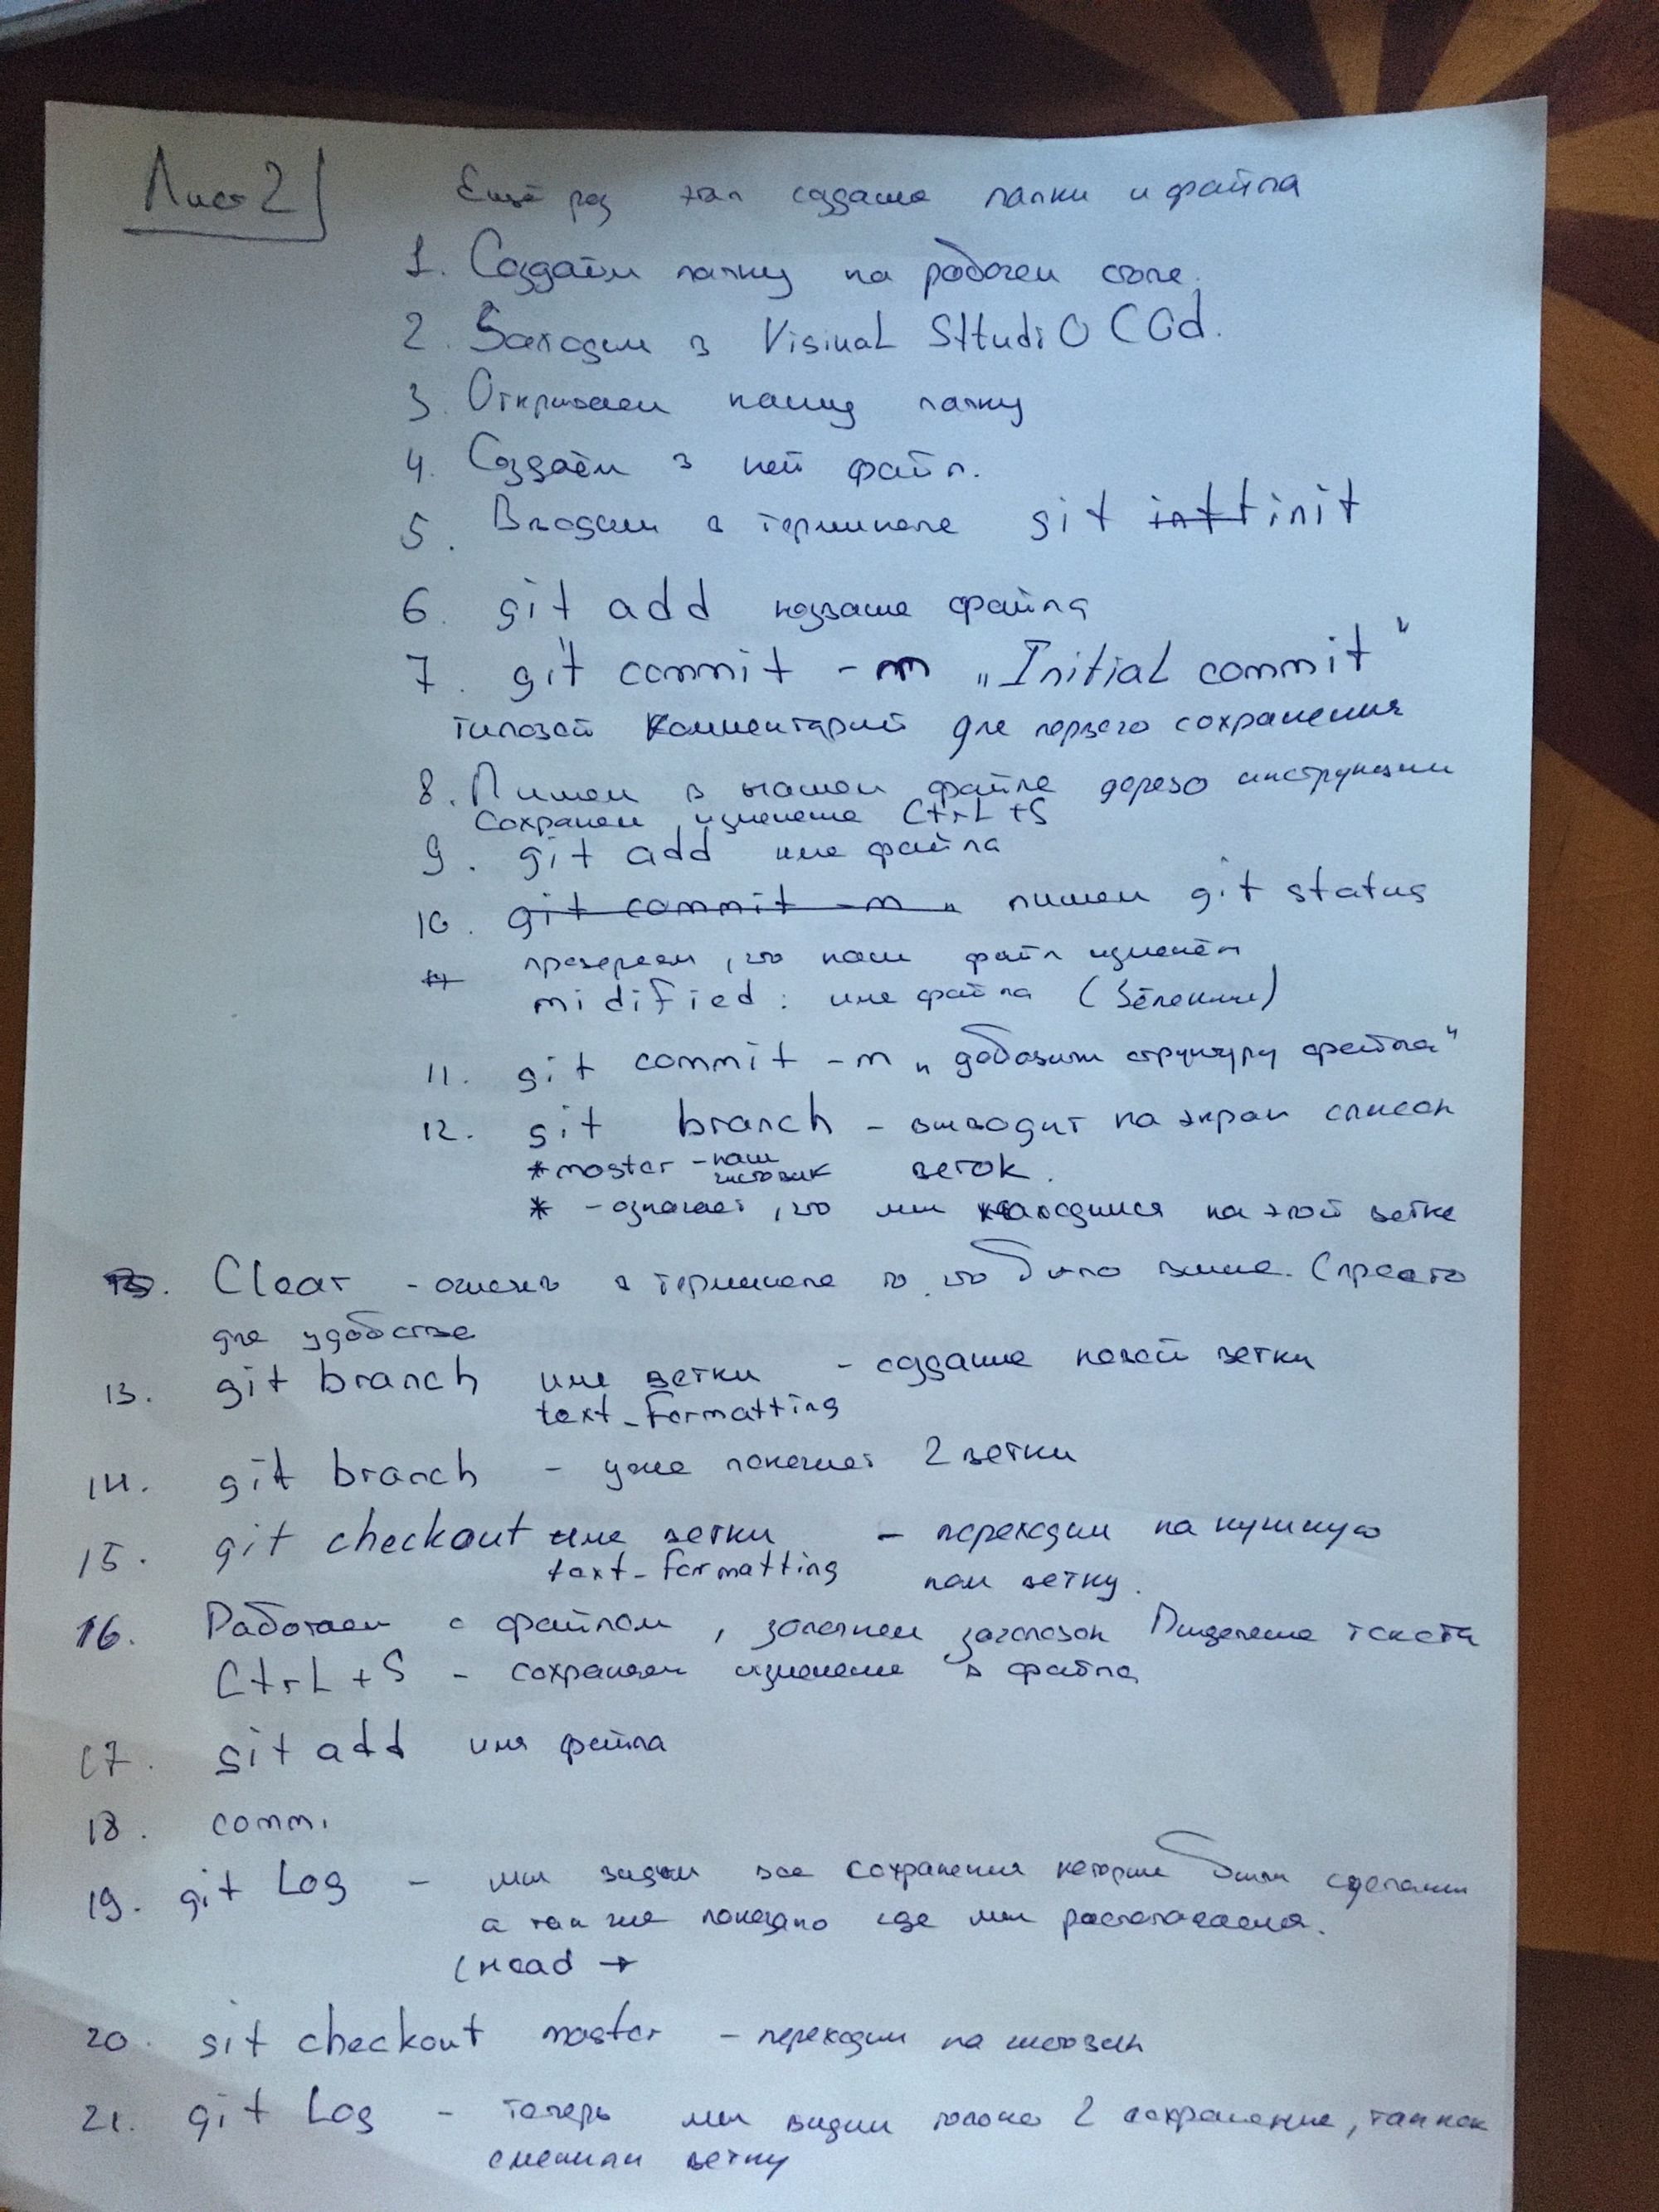 Лист 2
Ещё раз этап создание папки и файла
1. Создаём папку на рабочем столе.
2. Заходим в Visinal SttudiO COd.
3. Открываем нашу папку
4. Создаём в ней файл.
5. Вводим в терминале git intt init
6. git add название файла
7. git commit -m „Initial commit"
типовой комментарий для первого сохранения
8. Пишем в нашем файле дерево инструкции
Сохраняем изменение Ctrl+S
9. git add имя файла
10. git commit -m „ пишем git status
проверяем, что наш файл изменён
midified: имя файла (Зелёным)
11. git commit -m „добавили структуру файла"
12. git branch - выводит на экран список
*master - наш чистовик веток.
* - означает, что мы находимся на этой ветке
13. Clear - очистка в терминале то что было выше. (просто
для удобства
13. git branch имя ветки - создание новой ветки
text_formatting
14. git branch - уже покажет 2 ветки
15. git checkout имя ветки - переходим на нужную
text_formatting нам ветку.
16. Работаем с файлом, заполняем заголовок Выделение текста
Ctrl+S - сохраняем изменение в файла
17. git add имя файла
18. comm.
19. git Log - мы видим все сохранения которые были сделаны
а так же показано где мы располагаемся.
(Head →
20. git checkout master - переходим на чистовик
21. git Log - теперь мы видим только 2 сохранение, так как
сменили ветку